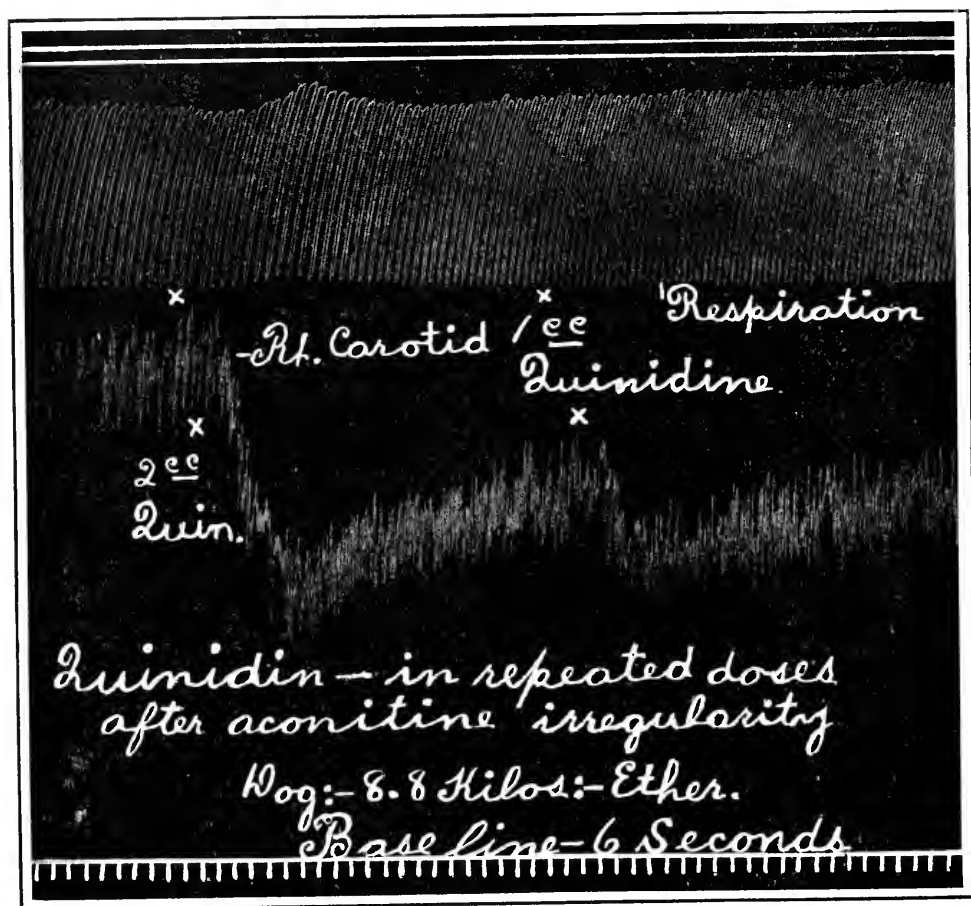 x x 'Respiration
-Rt. Carotid 1 cc
Quinidine
x x
2 cc
Quin.
Quinidin — in repeated doses
after aconitine irregularity
Dog:- 8.8 Kilos:- Ether.
Base line - 6 Seconds